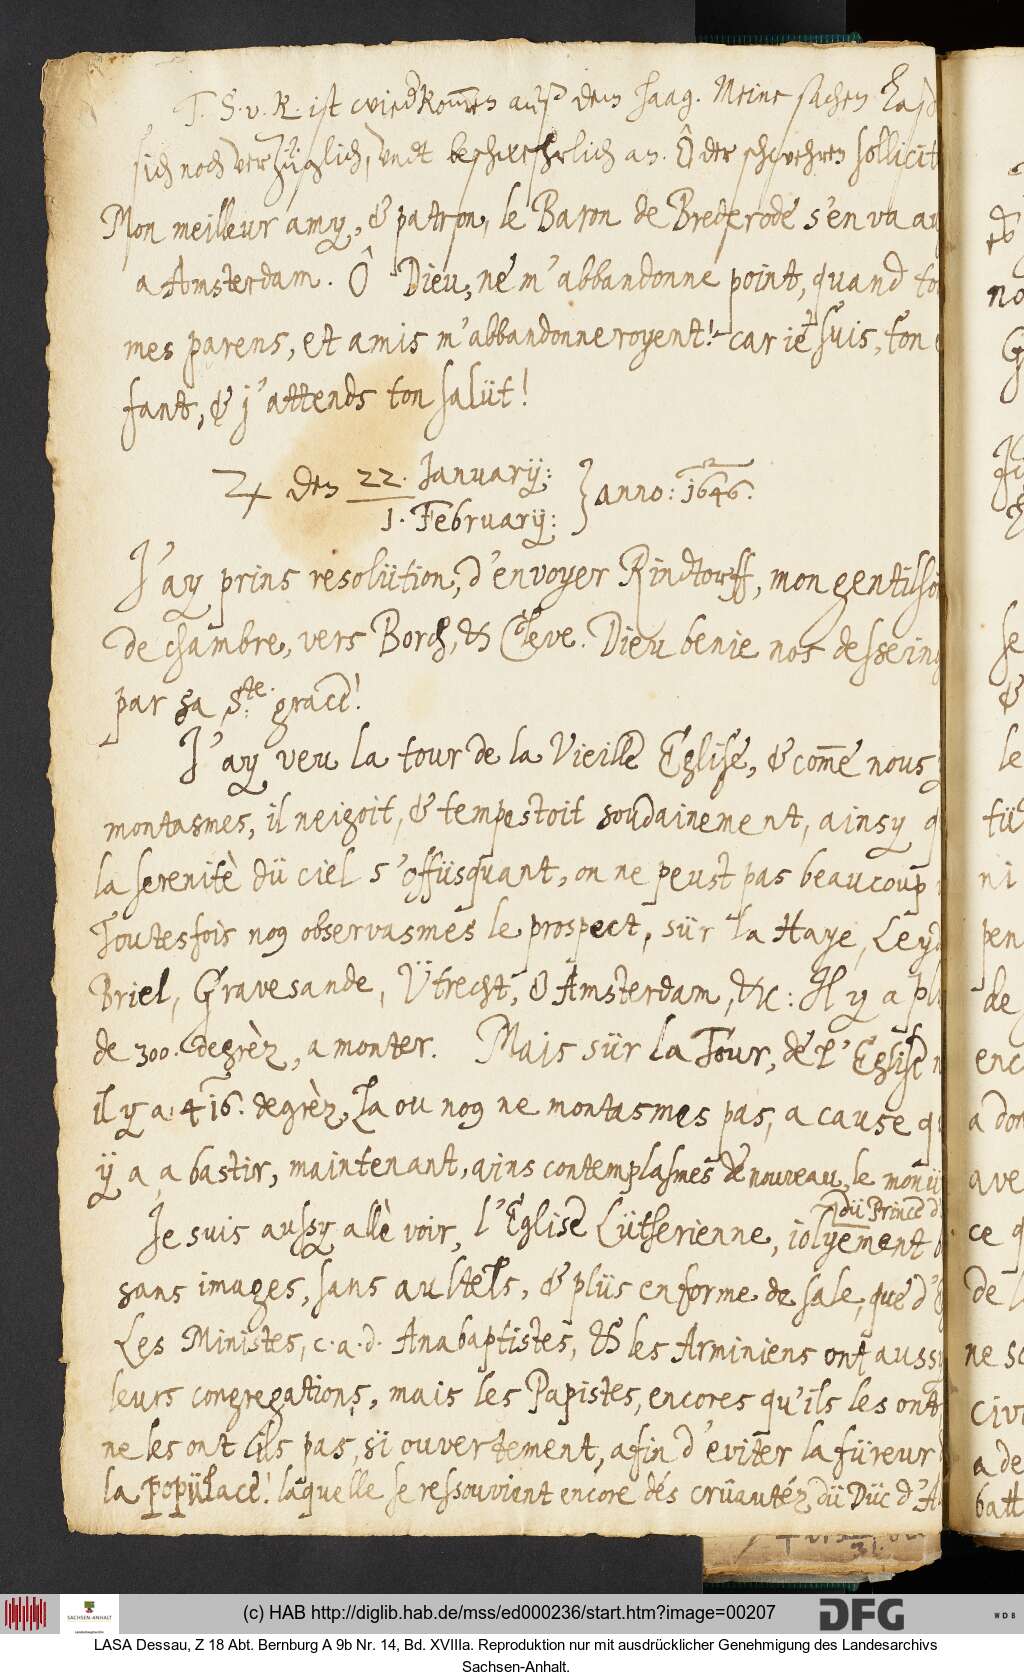 T. S. v. K. ist wiedkom̅en auß dem Haag. Meine sachen laß
sich noch verzüglich, undt beschwehrlich an. Ô der schwehren sollicit
Mon meilleur amy, & patron, le Baron de Brederode s'en va au
a Amsterdam. Ô Dieu, ne m'abbandonne point, quand to
mes parens, et amis m'abbandonneroyent! car ie suis, ton
fant, & j'attends ton salüt!
♃ den 22. Januarij:
1. Februarij: } anno: 1646.
J'ay prins resolütion, d'envoyer Rindtorff, mon gentilho
de chambre, vers Borch, & Cleve. Dieu benie nos desseing
par sa Ste. grace!
J'ay veu la tour de la Vieille Eglise, & com̅e nous y
montasmes, il neigoit, & tempestoit soudainement, ainsy q
la serenitè dü ciel s'offüsquant, on ne peust pas beaucoup
Toutesfois no9 observasmes le prospect, sür la Haye, Leyd
Briel, Gravesande, Ütrecht, & Amsterdam, &c: Il y a pl
de 300. degrèz, a monter. Mais sür la Tour, de l'Eglise n
il y a: 416. degrèz, la ou no9 ne montasmes pas, a cause qu
ÿ a, a bastir, maintenant, ains contemplasmes de nouveau, le monü
dü Prince d'
Je suis aussy allè voir, l'Eglise Lütherienne, iolyement
sans images, sans aultels, & plüs en forme de sale, que d'E
Les Ministes, c. a. d. Anabaptistes, & les Arminiens ont aussy
leurs congregations, mais les Papistes, encores qu'ils les ont
ne les ont ils pas, si ouvertement, afin d'eviter la füreur
la popülace! laquelle se ressouvient encore dés crüautéz dü Düc d'A
(c) HAB http://diglib.hab.de/mss/ed000236/start.htm?image=00207
SACHSEN-ANHALT
DFG
WDB
LASA Dessau, Z 18 Abt. Bernburg A 9b Nr. 14, Bd. XVIIIa. Reproduktion nur mit ausdrücklicher Genehmigung des Landesarchivs
Sachsen-Anhalt.